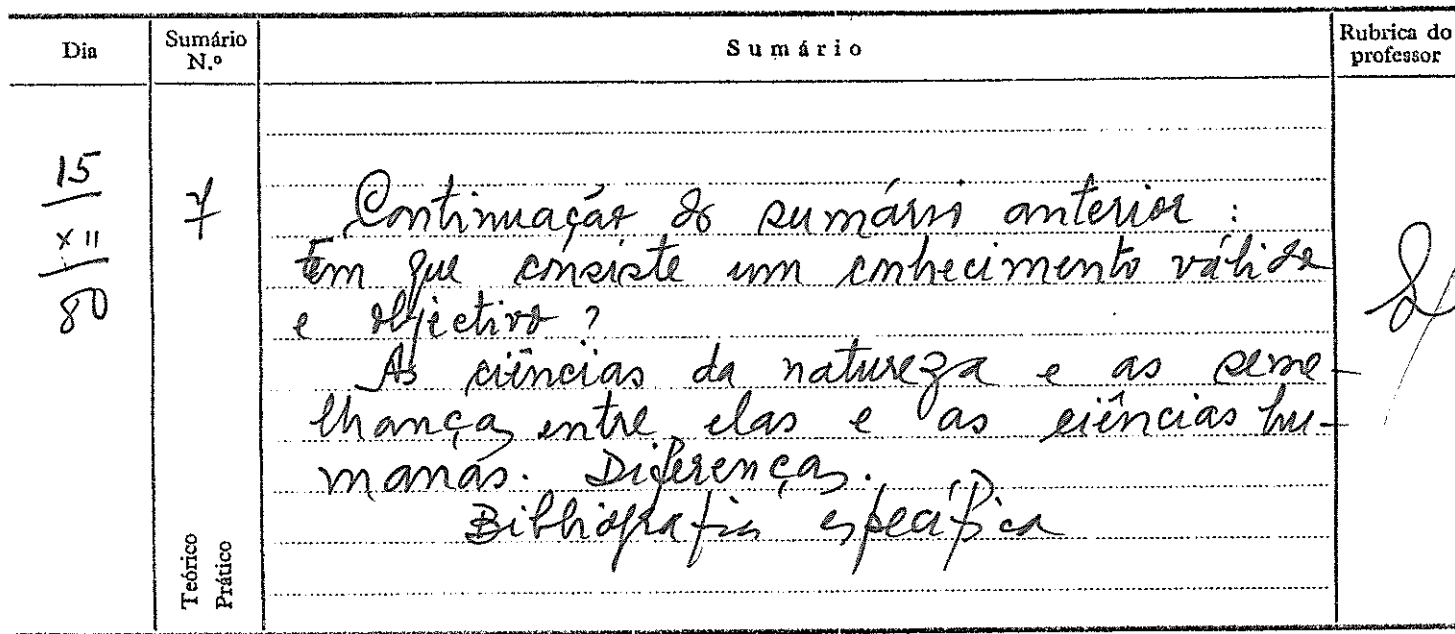 Dia
Sumário N.º
Sumário
Rubrica do professor
15
XII
80
7
Continuação do sumário anterior :
Em que consiste um conhecimento válido
e objectivo ?
As ciências da natureza e as seme-
lhanças entre elas e as ciências hu-
manas. Diferenças.
Bibliografia específica
Teórico
Prático